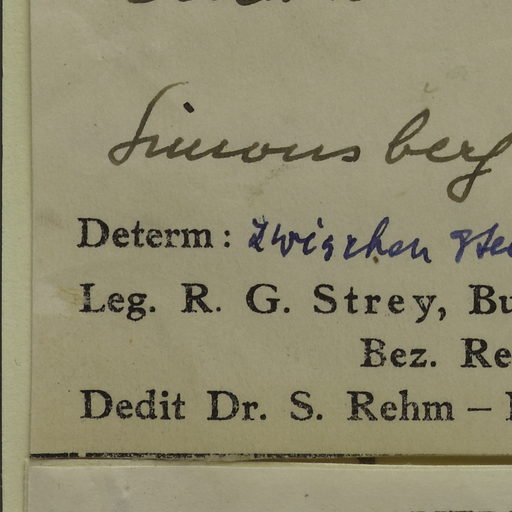 Simonsberg
Determ: zwischen
Leg. R. G. Strey, Bu
Bez. Re
Dedit Dr. S. Rehm –